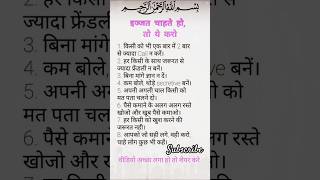 بِسْمِ اللهِ الرَّحْمٰنِ الرَّحِيْمِ
इज्जत चाहते हो,
तो ये करो
1. किसी को भी एक बार में 2 बार
से ज्यादा Call न करें।
2. हर किसी के साथ जरूरत से
ज्यादा फ्रेंडली न बनें।
3. बिना मांगे ज्ञान न दें।
4. कम बोले, थोड़े secretive बनें।
5. अपनी अगली चाल किसी को
मत पता चलने दो।
6. पैसे कमाने के अलग अलग रस्ते
खोजो और खूब पैसे कमाओ।
7. हर किसी को खुश करने की
जरूरत नही।
8. आपको जो सही लगे, वही करो,
चाहे लोग कुछ भी कहें।
Subscribe
वीडियो अच्छा लगा हो तो शेयर करे